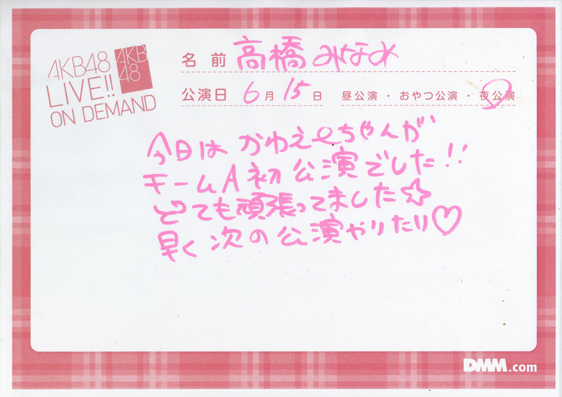 AKB48
LIVE!!
ON DEMAND
AKB
48
名前 高橋みなみ
公演日 6月15日 昼公演・おやつ公演・夜公演
今日は かわえーちゃんが
チームA初公演でした!!
とても頑張ってました☆
早く次の公演やりたい♡
DMM.com